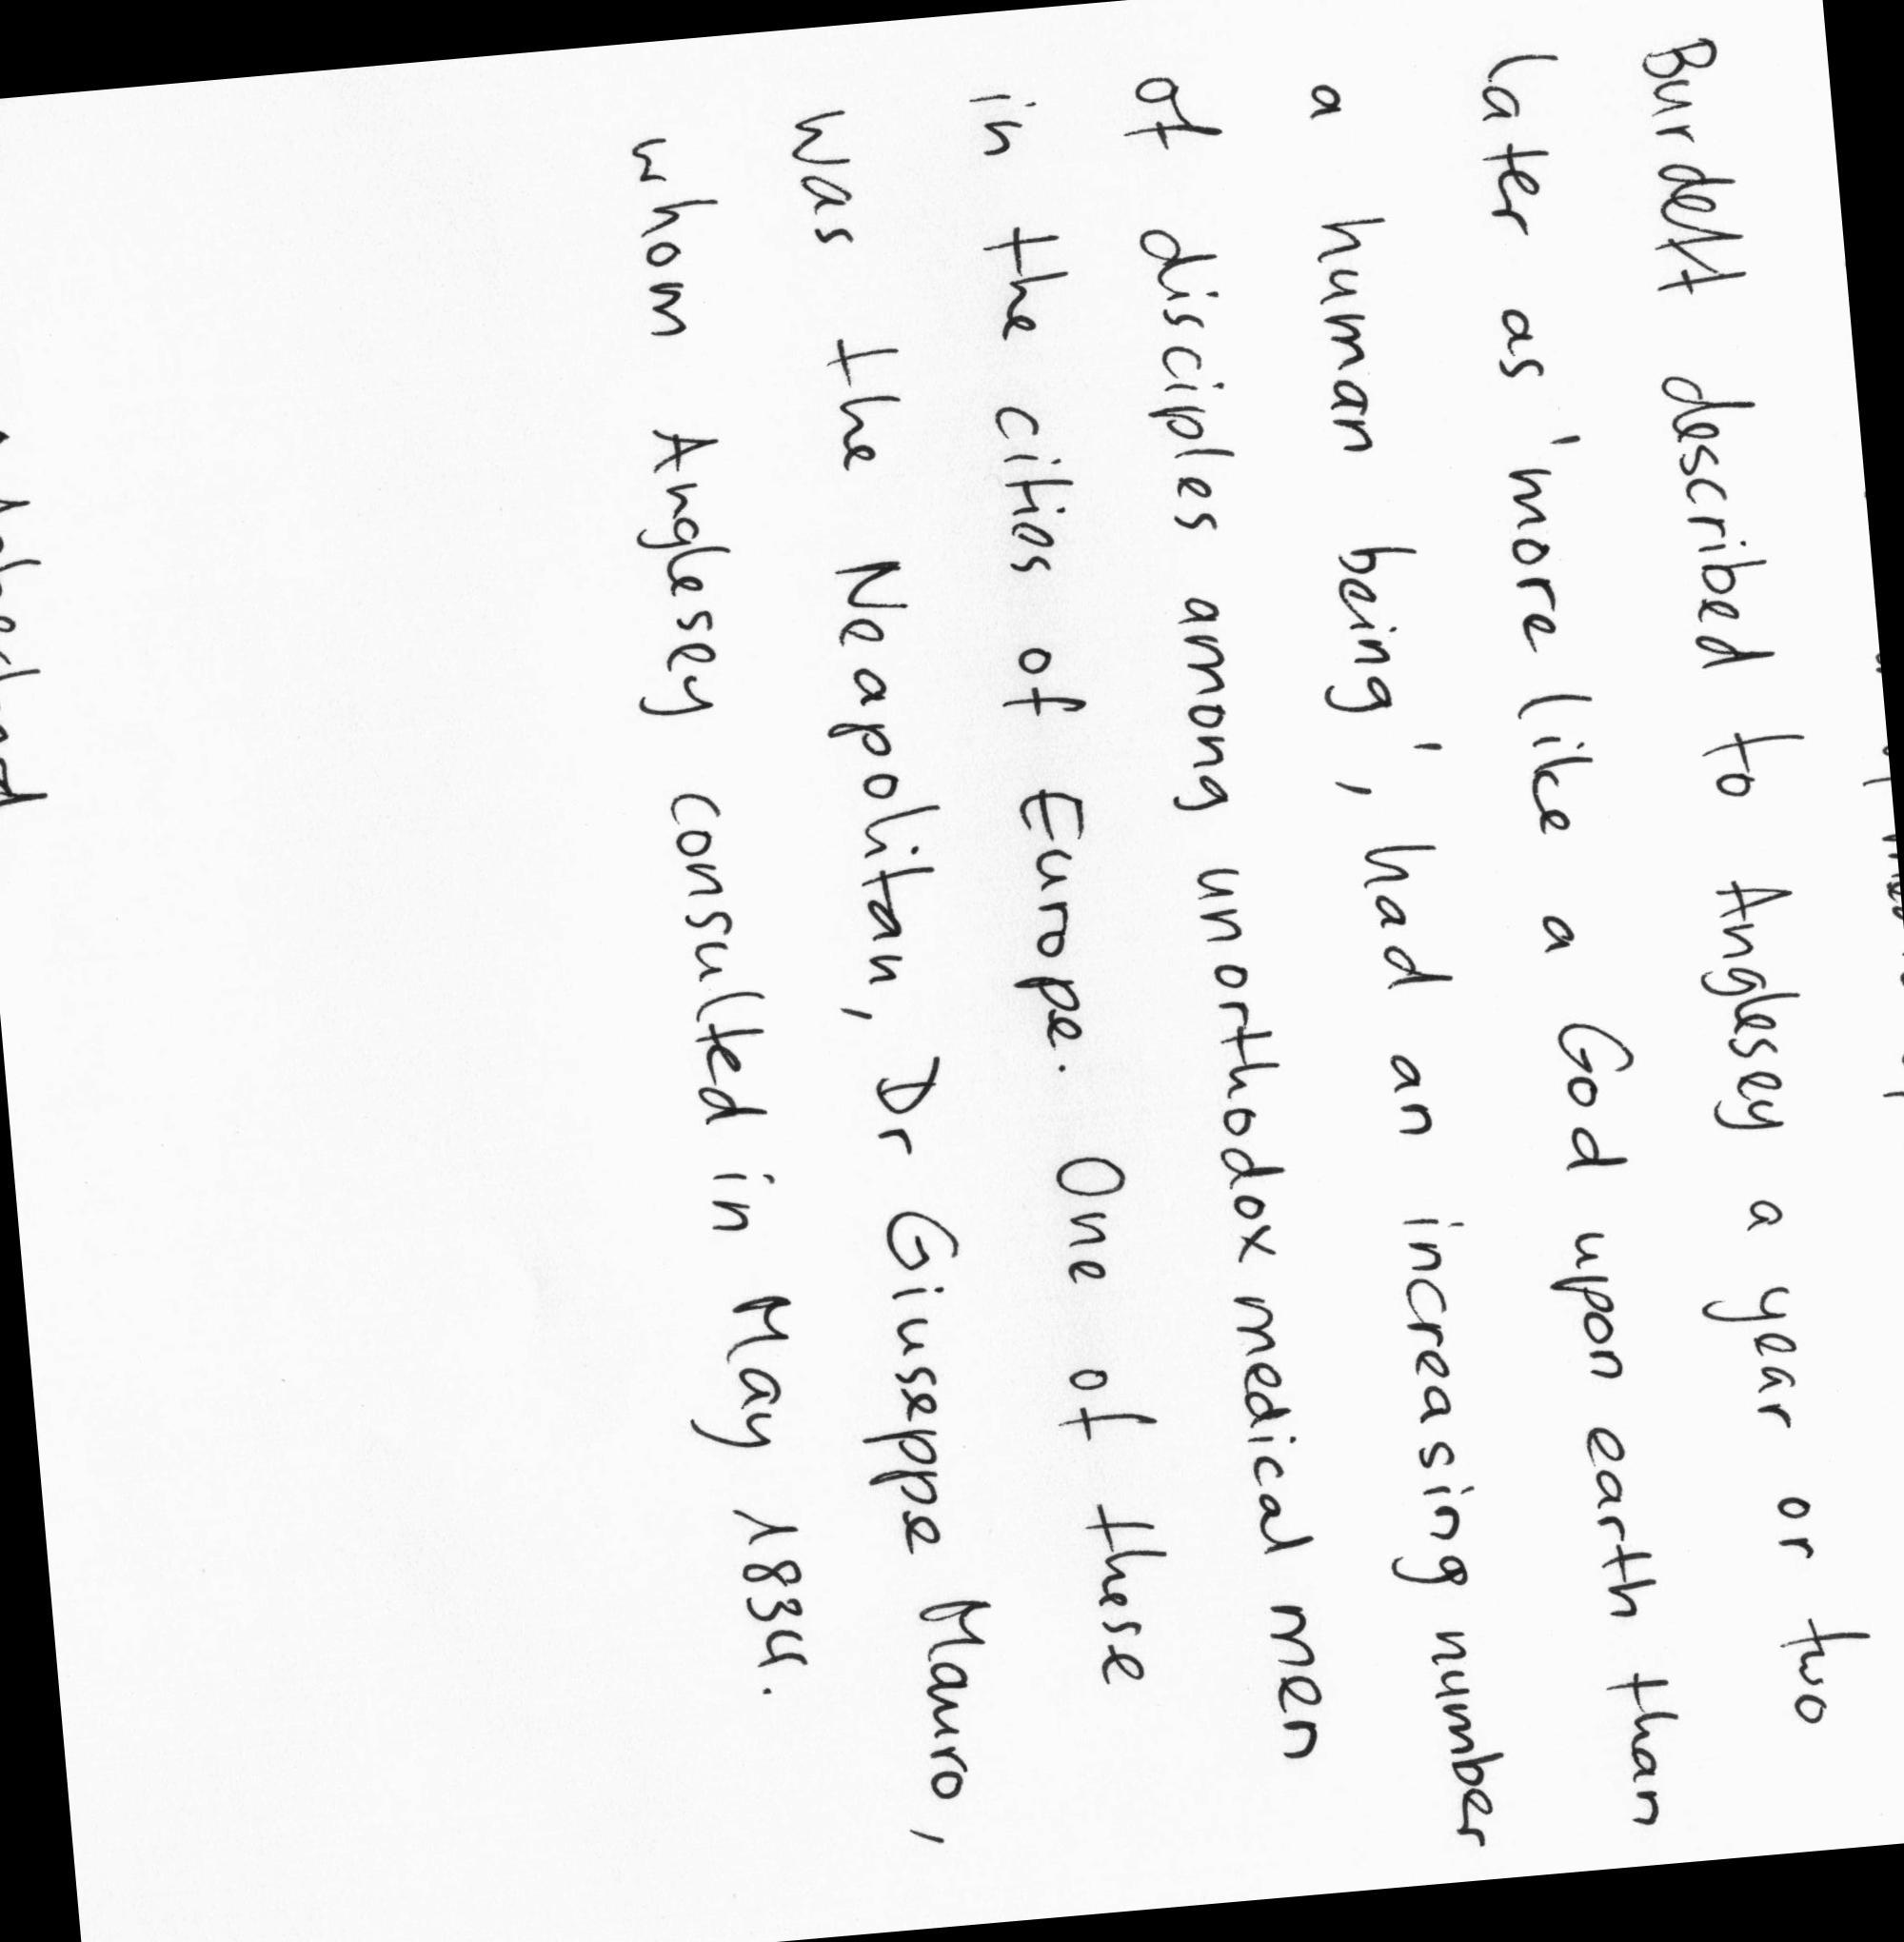 Burdett described to Anglesey a year or two
later as 'more like a God upon earth than
a human being', had an increasing number
of disciples among unorthodox medical men
in the cities of Europe. One of these
was the Neapolitan, Dr Giuseppe Mauro,
whom Anglesey consulted in May 1834.